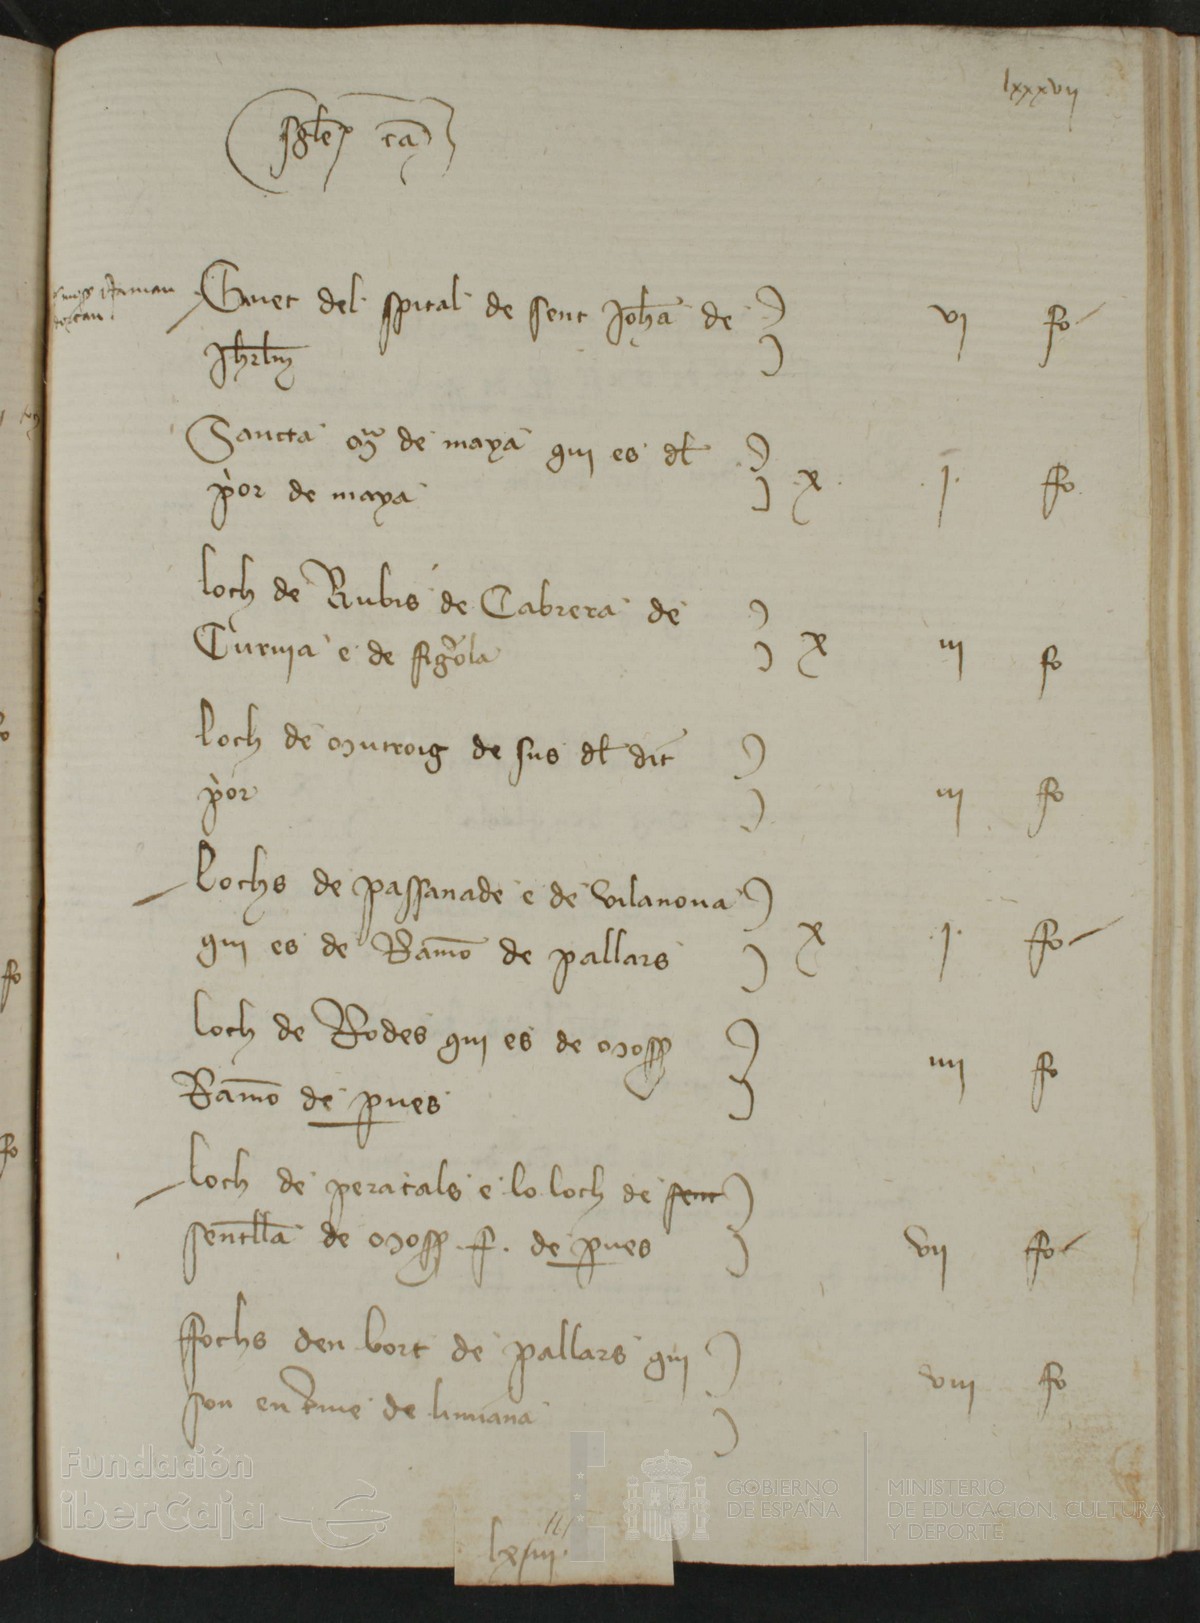 lxxxvij
Guet del spital de sent Johã de vj fo
Jhrlm
Sancta mª de maya qui es dl
p̀or de maya x j ffo
loch de Rubis de Cabrera de
Turnia e de fig̉ola x iij fo
loch de mutroig de sus dl dit
p̀or iij fo
Lochs de passanade e de vilanoua
qui es de Ramõ de pallars x j ffo
loch de Rodes qui es de moss
Ramõ de pues iiij fo
loch de peracals e lo loch de sent
de moss f. de pues vij ffo
ffochs den bort de pallars qui
son en t̃me de limiana viij fo
lxiiij.
Fundación
iberCaja
GOBIERNO
DE ESPAÑA
MINISTERIO
DE EDUCACIÓN, CULTURA
Y DEPORTE